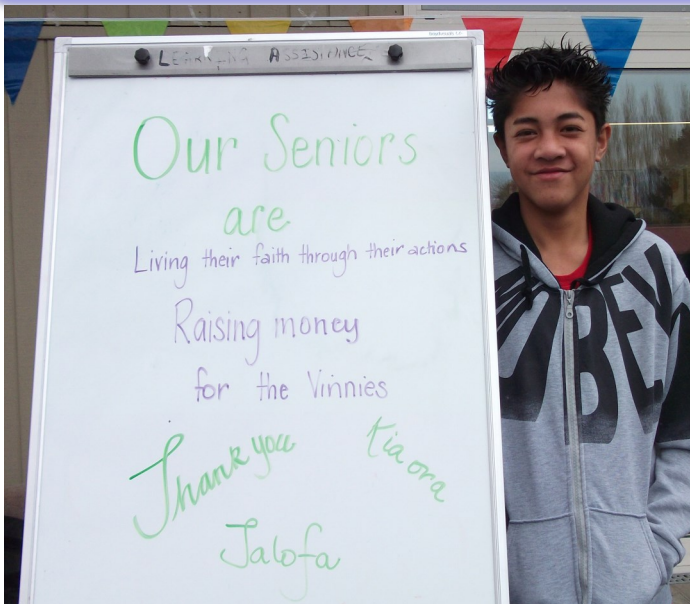 LEARNING ASSISTANCE
Our Seniors
are
Living their faith through their actions
Raising money
for the Vinnies
Thank you
Kia ora
Talofa
OBEY